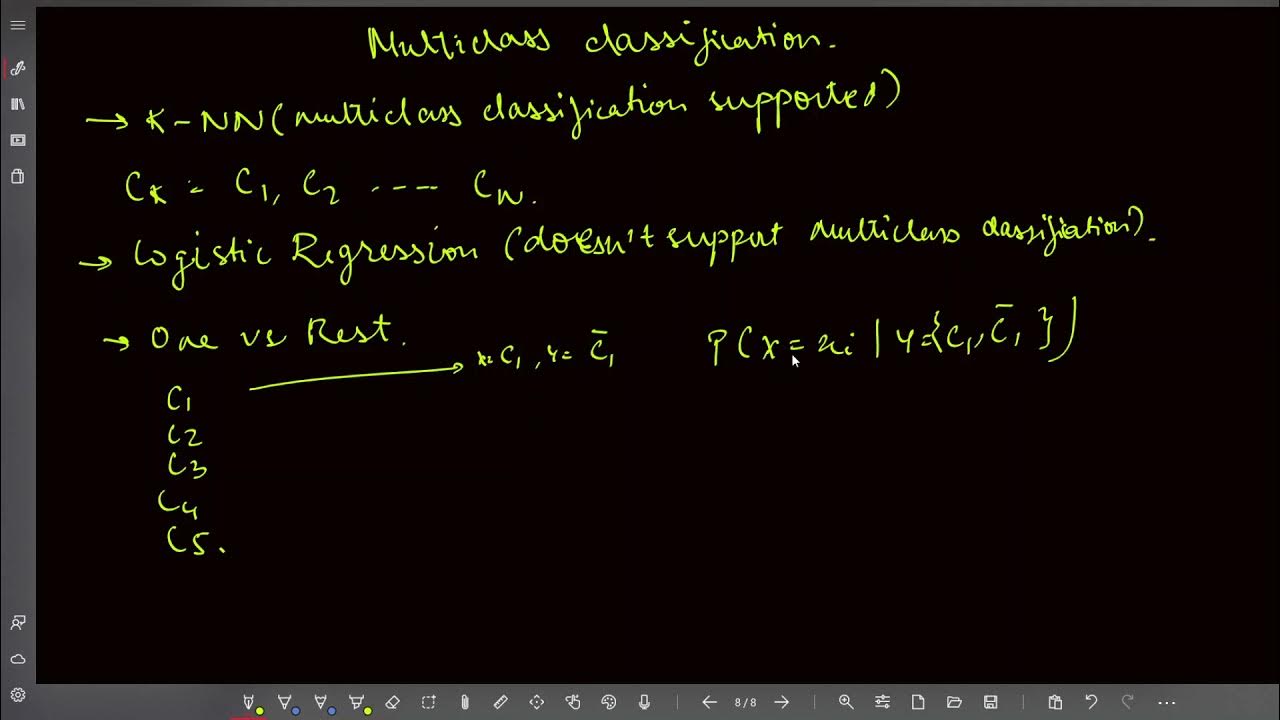 Multiclass classification.
→ K-NN (multiclass classification supported)
Ck = C1, C2 ---- CN.
→ Logistic Regression (doesn't support multiclass classification).
→ One vs Rest.
x=C1, y= C̄1
P(x=xi | y={C1, C̄1})
C1
C2
C3
C4
C5.
8/8